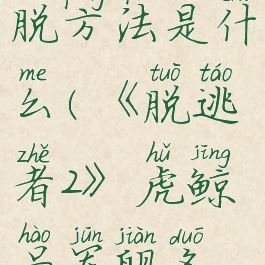 脱方法是什
me tuō táo
么(《脱逃
zhě hǔ jīng
者2》 虎鲸
hào jūn jiàn duō
号军舰多